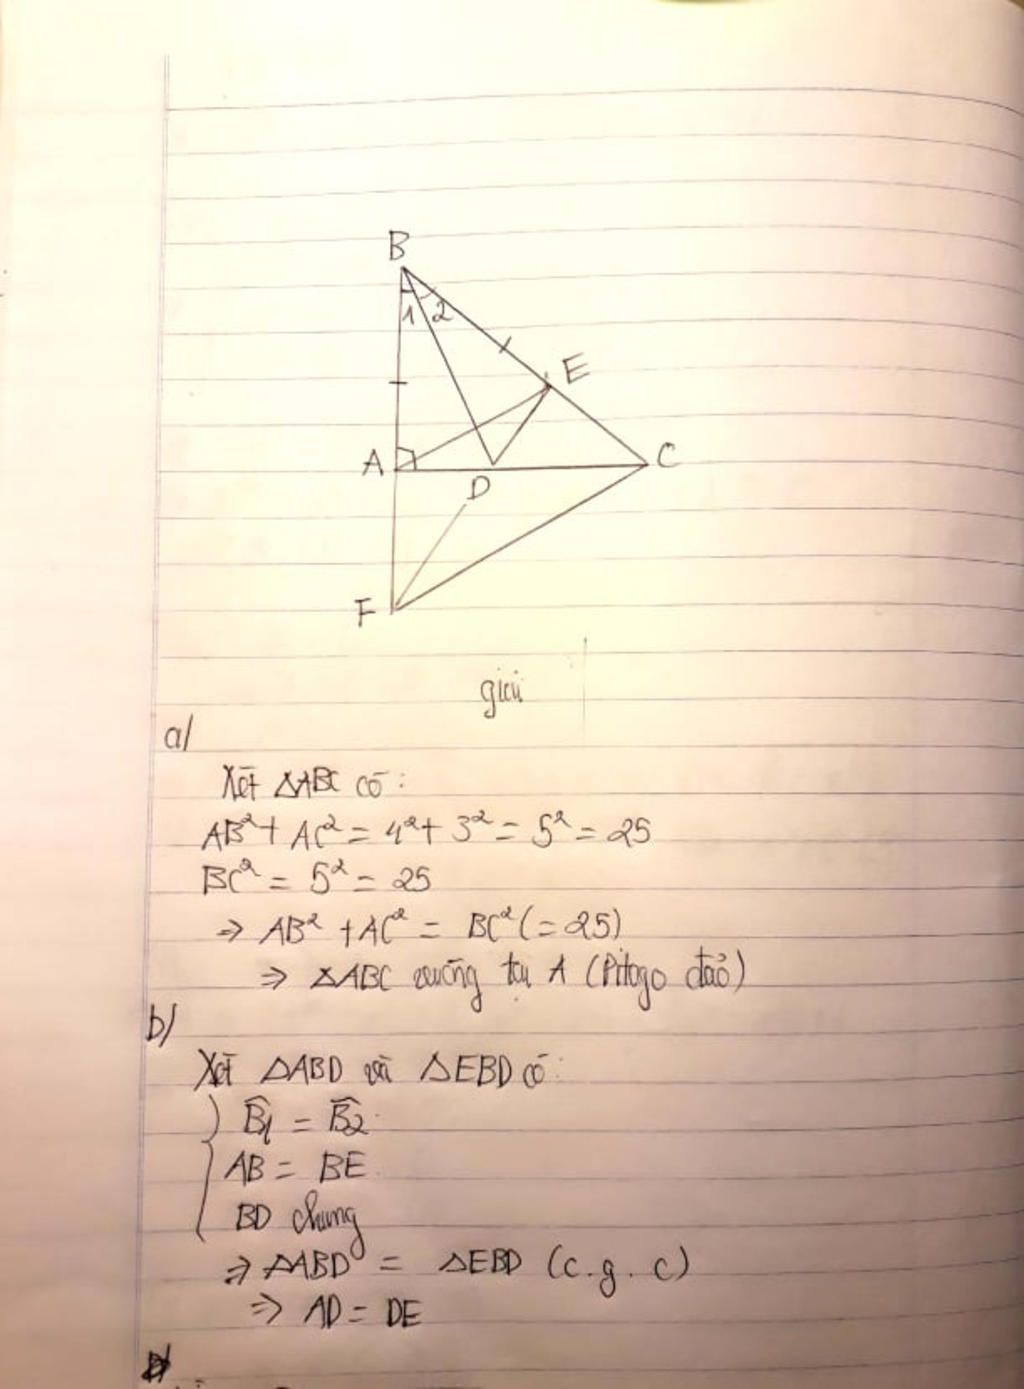 B
1 2
E
A
D
C
F
giải
a/
Xét △ABC có:
AB² + AC² = 4² + 3² = 5² = 25
BC² = 5² = 25
⇒ AB² + AC² = BC² (= 25)
⇒ △ABC vuông tại A (Pitago đảo)
b/
Xét △ABD và △EBD có:
B̂1 = B̂2
AB = BE
BD chung
⇒ △ABD = △EBD (c.g.c)
⇒ AD = DE